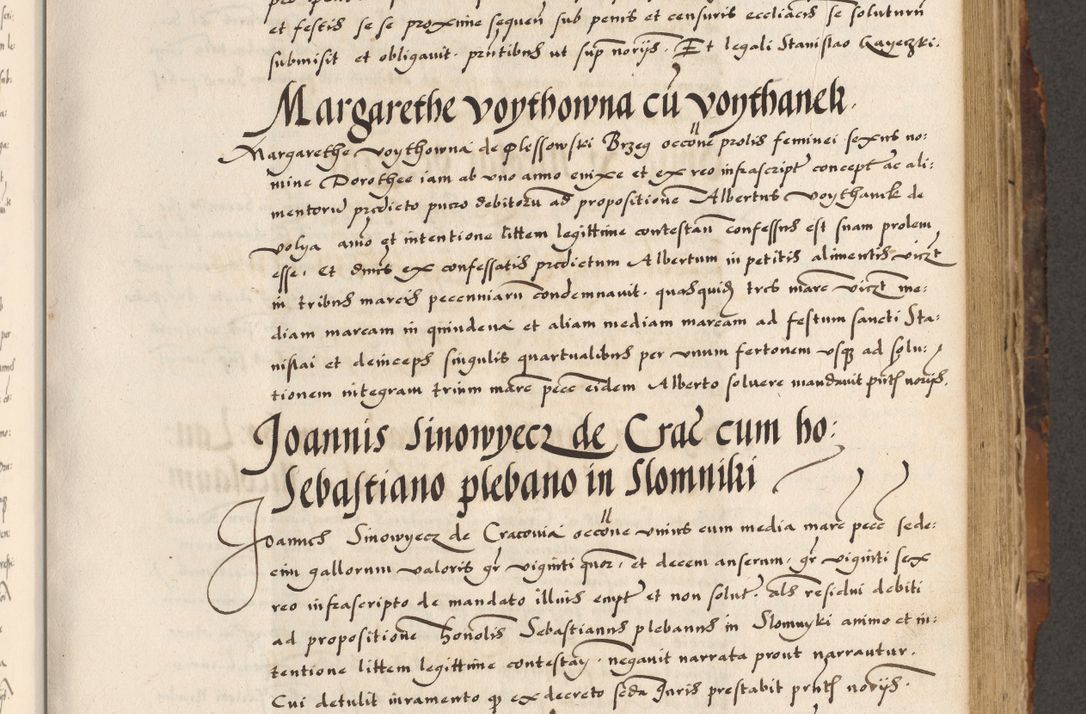 et festis se se proxime sequen̄ sub penis et censuris eccliacis se soluturū
submisit et obligauit. pn̄tibus ut sup norijs. Et legali Stanislao Gayeczki.
Margarethe voythowna cū voythanek.
Margarethe voythowna de plessowski Brzeg occōne prolis feminei sexus no:
mine Dorothee iam ab vno anno enixe et ex reo infrascript concept ac ali:
mentorū predicto puero debitorū ad propositionē Albertus voythanek de
volya aīo et intentione littem legittime contestan̄ confessus est suam prolem
esse. Et dnus ex confessatis predictum Albertum in petitis alimentis
in tribus marcis pecenniarū condemnauit. quasquidē tres marc me:
diam marcam in quindena et aliam mediam marcam ad festum sancti Sta:
nislai et deinceps singulis quartualibus per vnum fertonem vsq ad solu:
tionem integram trium marc pecc eidem Alberto soluere mandauit pn̄tibus norijs.
Joannis Sinowyecz de Crac cum ho:
Sebastiano plebano in Slomniki
Joannes Sinowyecz de Cracovia occōne vnius cum media marc pecc sede:
cim gallorum valoris gr viginti quor, et decem anserum, gr viginti sex
reo infrascripto de mandato illius empt et non solut. als residui debiti
ad propositionē honolis Sebastianus plebanus in Slomnyki animo et in:
tentione littem legittime contestan̄. negauit narrata prout narrautur.
Cui detulit iuramento q ex decreto sedm Juris prestabit pn̄tibus norijs.